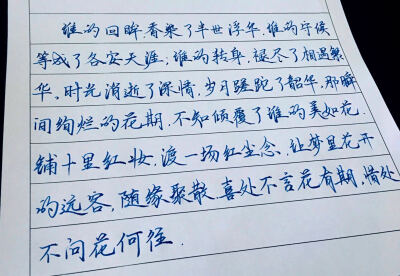 谁的回眸看帐了半世浮华.谁的守候
等成了各安天涯,谁的转身,褪尽了相遇繁
华、时光消逝了深情.岁月蹉跎了韶华.那瞬
间绚烂的花期.不知倾覆了谁的美如花.
铺十里红妆,渡一场红尘念.让梦里花开
的远客,随缘聚散.喜处不言花有期,惜处
不问花何往.